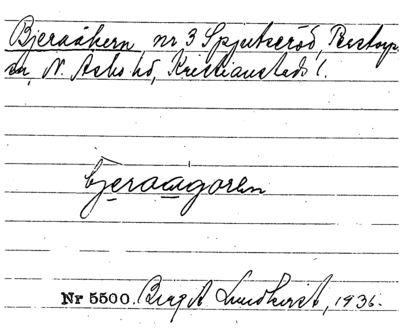 Bjeraåkern, nr 3 Spjutseröd, Perstorp
sn, N. Åsbo hd, Kristianstads l.
bjeraågoren
Nr 5500. Birgit Lundkvist, 1936.